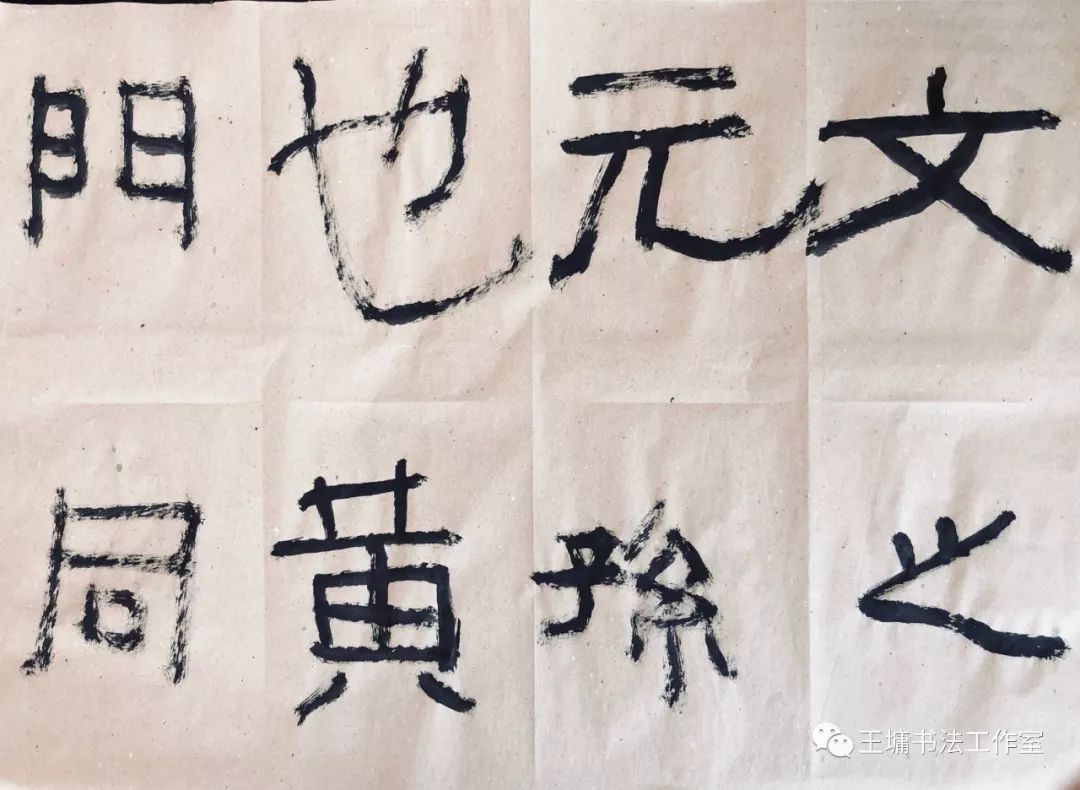 文之
元孫
也黃
門同
王墉书法工作室